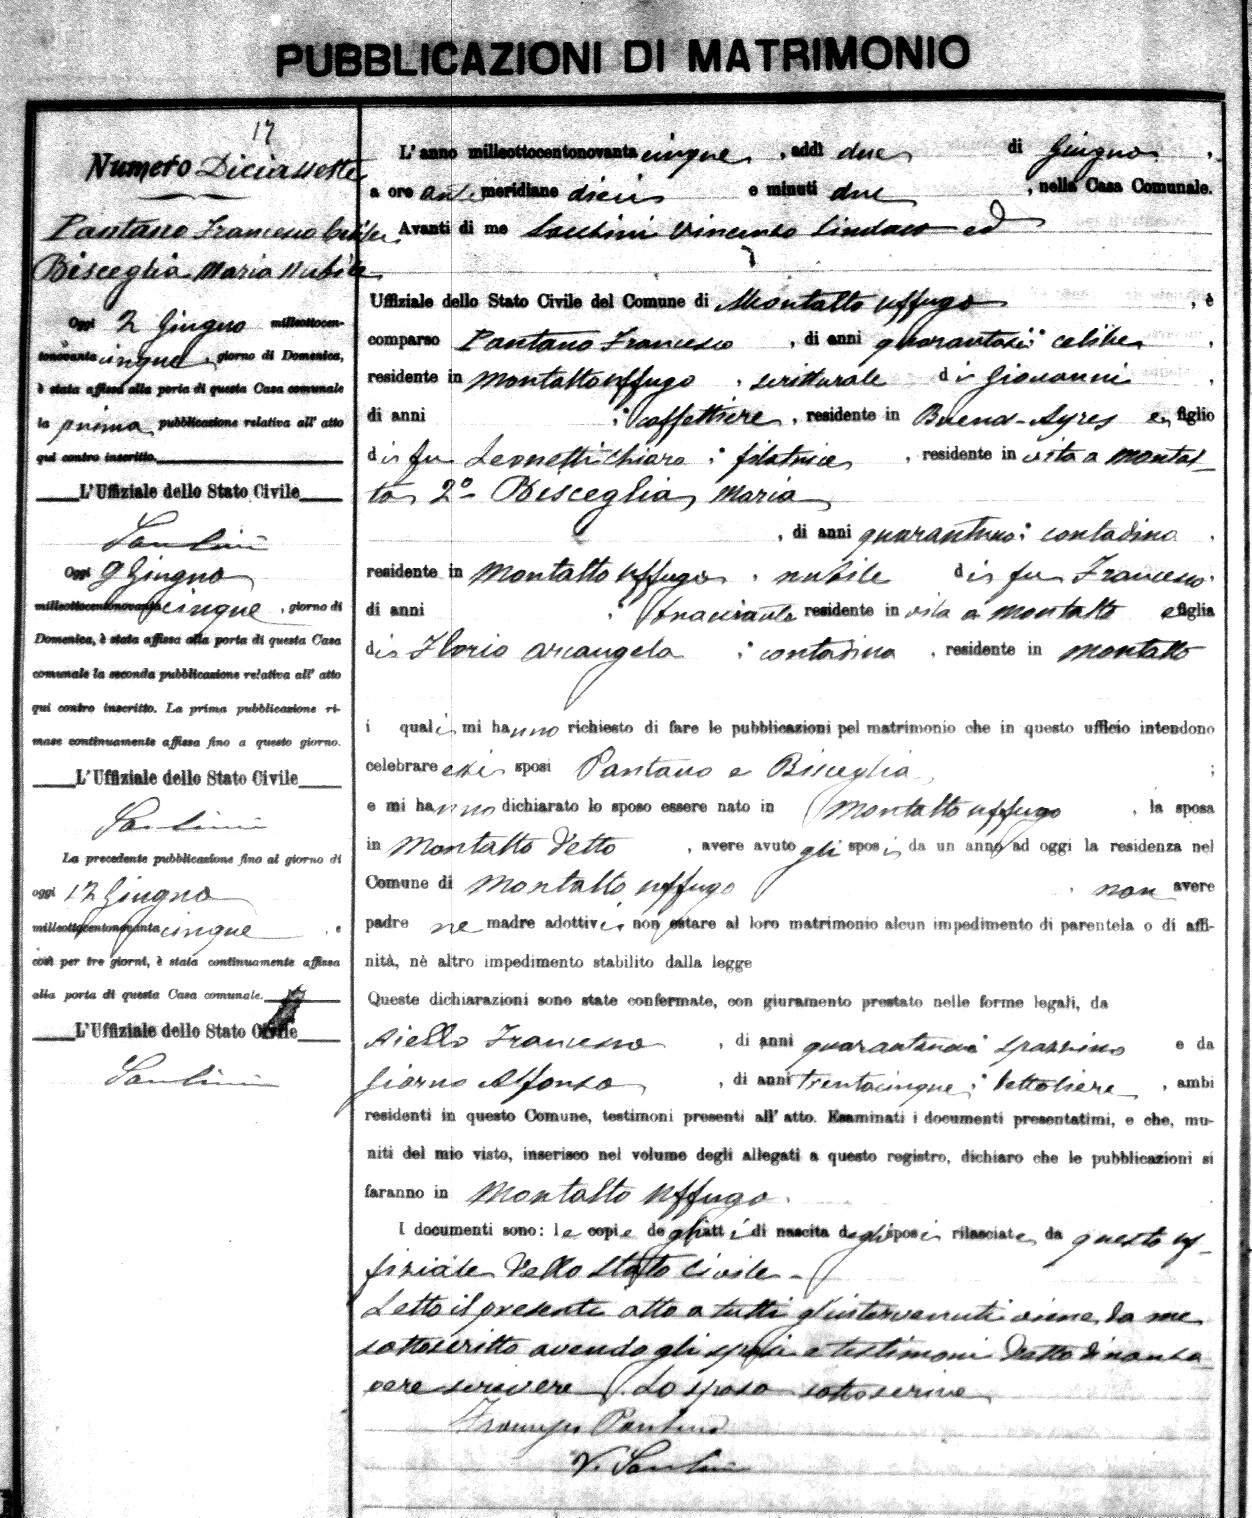 PUBBLICAZIONI DI MATRIMONIO
17
Numero Diciassette
Pantano Francesco Celibe
Bisceglia Maria Nubile
Oggi 2 Giugno milleottocen-
tonovanta cinque, giorno di Domenica,
è stata affissa alla porta di questa Casa comunale
la prima pubblicazione relativa all' atto
qui contro inscritto.
L'Uffiziale dello Stato Civile
Oggi 9 Giugno
milleottocentonovanta cinque, giorno di
Domenica, è stata affissa alla porta di questa Casa
comunale la seconda pubblicazione relativa all' atto
qui contro inscritto. La prima pubblicazione ri-
mase continuamente affissa fino a questo giorno.
L'Uffiziale dello Stato Civile
La precedente pubblicazione fino al giorno di
oggi 12 Giugno
milleottocentonovanta cinque, e
così per tre giorni, è stata continuamente affissa
alla porta di questa Casa comunale.
L'Uffiziale dello Stato Civile
L' anno milleottocentonovanta cinque, addì due di Giugno,
a ore ante meridiane dieci e minuti due, nella Casa Comunale.
Avanti di me Vincenzo Sindaco ed
Uffiziale dello Stato Civile del Comune di Montalto Uffugo, è
comparso Pantano Francesco, di anni quarantasei: celibe,
residente in Montalto Uffugo, scritturale di Giovanni,
di anni : caffettiere, residente in Buend-Ayres e, figlio
di fu Leonetti Chiara: filatrice, residente in vita a Montal-
to, 2º Bisceglia, Maria
, di anni quarantuno: contadina,
residente in Montalto Uffugo, nubile di fu Francesco,
di anni : residente in vita a Montalto e figlia
di Florio Arcangela : contadina, residente in Montalto
i quali mi hanno richiesto di fare le pubblicazioni pel matrimonio che in questo ufficio intendono
celebrare essi sposi Pantano e Bisceglia;
e mi hanno dichiarato lo sposo essere nato in Montalto Uffugo, la sposa
in Montalto detto, avere avuto gli sposi da un anno ad oggi la residenza nel
Comune di Montalto Uffugo, non avere
padre ne madre adottivi non ostare al loro matrimonio alcun impedimento di parentela o di affi-
nità, nè altro impedimento stabilito dalla legge
Queste dichiarazioni sono state confermate, con giuramento prestato nelle forme legali, da
Aiello Francesco, di anni quarantanove spazzino e da
Giorno Alfonso, di anni trentacinque: bettoliere, ambi
residenti in questo Comune, testimoni presenti all' atto. Esaminati i documenti presentatimi, e che, mu-
niti del mio visto, inserisco nel volume degli allegati a questo registro, dichiaro che le pubblicazioni si
faranno in Montalto Uffugo.
I documenti sono: le copie degli atti di nascita degli sposi rilasciate da questo uf-
fiziale dello Stato Civile.
Letto il presente atto a tutti gl'intervenuti viene da me
sottoscritto avendo gli sposi e testimoni detto di non sa-
pere scrivere. Lo sposo sottoscrive